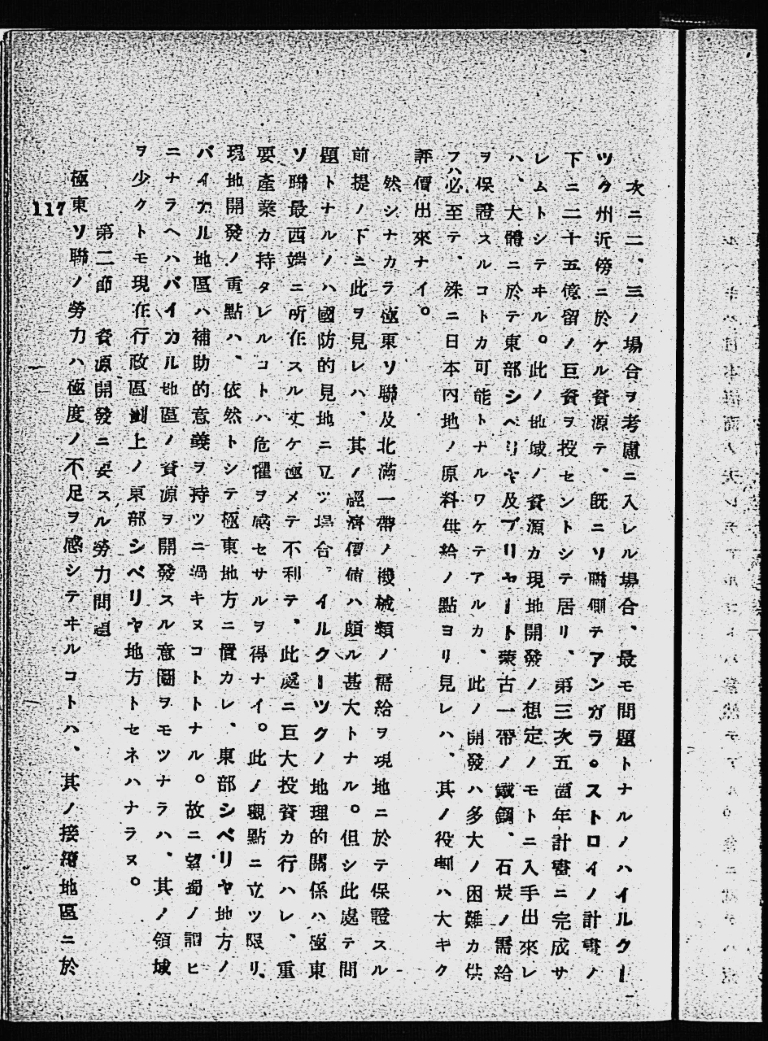 次ニ二、三ノ場合ヲ考慮ニ入レル場合、最モ問題トナルノハイルクー
ツク州近傍ニ於ケル資源テ、既ニソ聯側テアンガラ。ストロイノ計畫ノ
下ニ二十五億留ノ巨資ヲ投セントシテ居リ、第三次五箇年計畫ニ完成サ
レムトシテヰル。此ノ地域ノ資源カ現地開發ノ想定ノモトニ入手出來レ
ハ、大體ニ於テ東部シベリヤ及ブリヤート蒙古一帶ノ鐵鋼、石炭ノ需給
ヲ保證スルコトカ可能トナルワケテアルカ、此ノ開發ハ多大ノ困難カ供
フハ必至テ、殊ニ日本內地ノ原料供給ノ點ヨリ見レハ、其ノ役割ハ大キク
評價出來ナイ。
然シナカラ極東ソ聯及北滿一帶ノ機械類ノ需給ヲ現地ニ於テ保證スル
前提ノ下ニ此ヲ見レハ、其ノ經濟價値ハ頗ル甚大トナル。但シ此處テ問
題トナルノハ國防的見地ニ立ツ場合、イルクーツクノ地理的關係ハ極東
ソ聯最西端ニ所在スル丈ケ極メテ不利テ、此處ニ巨大投資カ行ハレ、重
要產業カ持タレルコトハ危懼ヲ感セサルヲ得ナイ。此ノ觀點ニ立ツ限リ、
現地開發ノ重點ハ、依然トシテ極東地方ニ置カレ、東部シベリヤ地方ノ
バイカル地區ハ補助的意義ヲ持ツニ過キヌコトトナル。故ニ望蜀ノ謂ヒ
ニナラヘハバイカル地區ノ資源ヲ開發スル意圖ヲモツナラハ、其ノ領域
ヲ少クトモ現在行政區劃上ノ東部シベリヤ地方トセネハナラヌ。
第二節　資源開發ニ要スル勞力問題
極東ソ聯ノ勞力ハ極度ノ不足ヲ感シテヰルコトハ、其ノ接壤地區ニ於
117